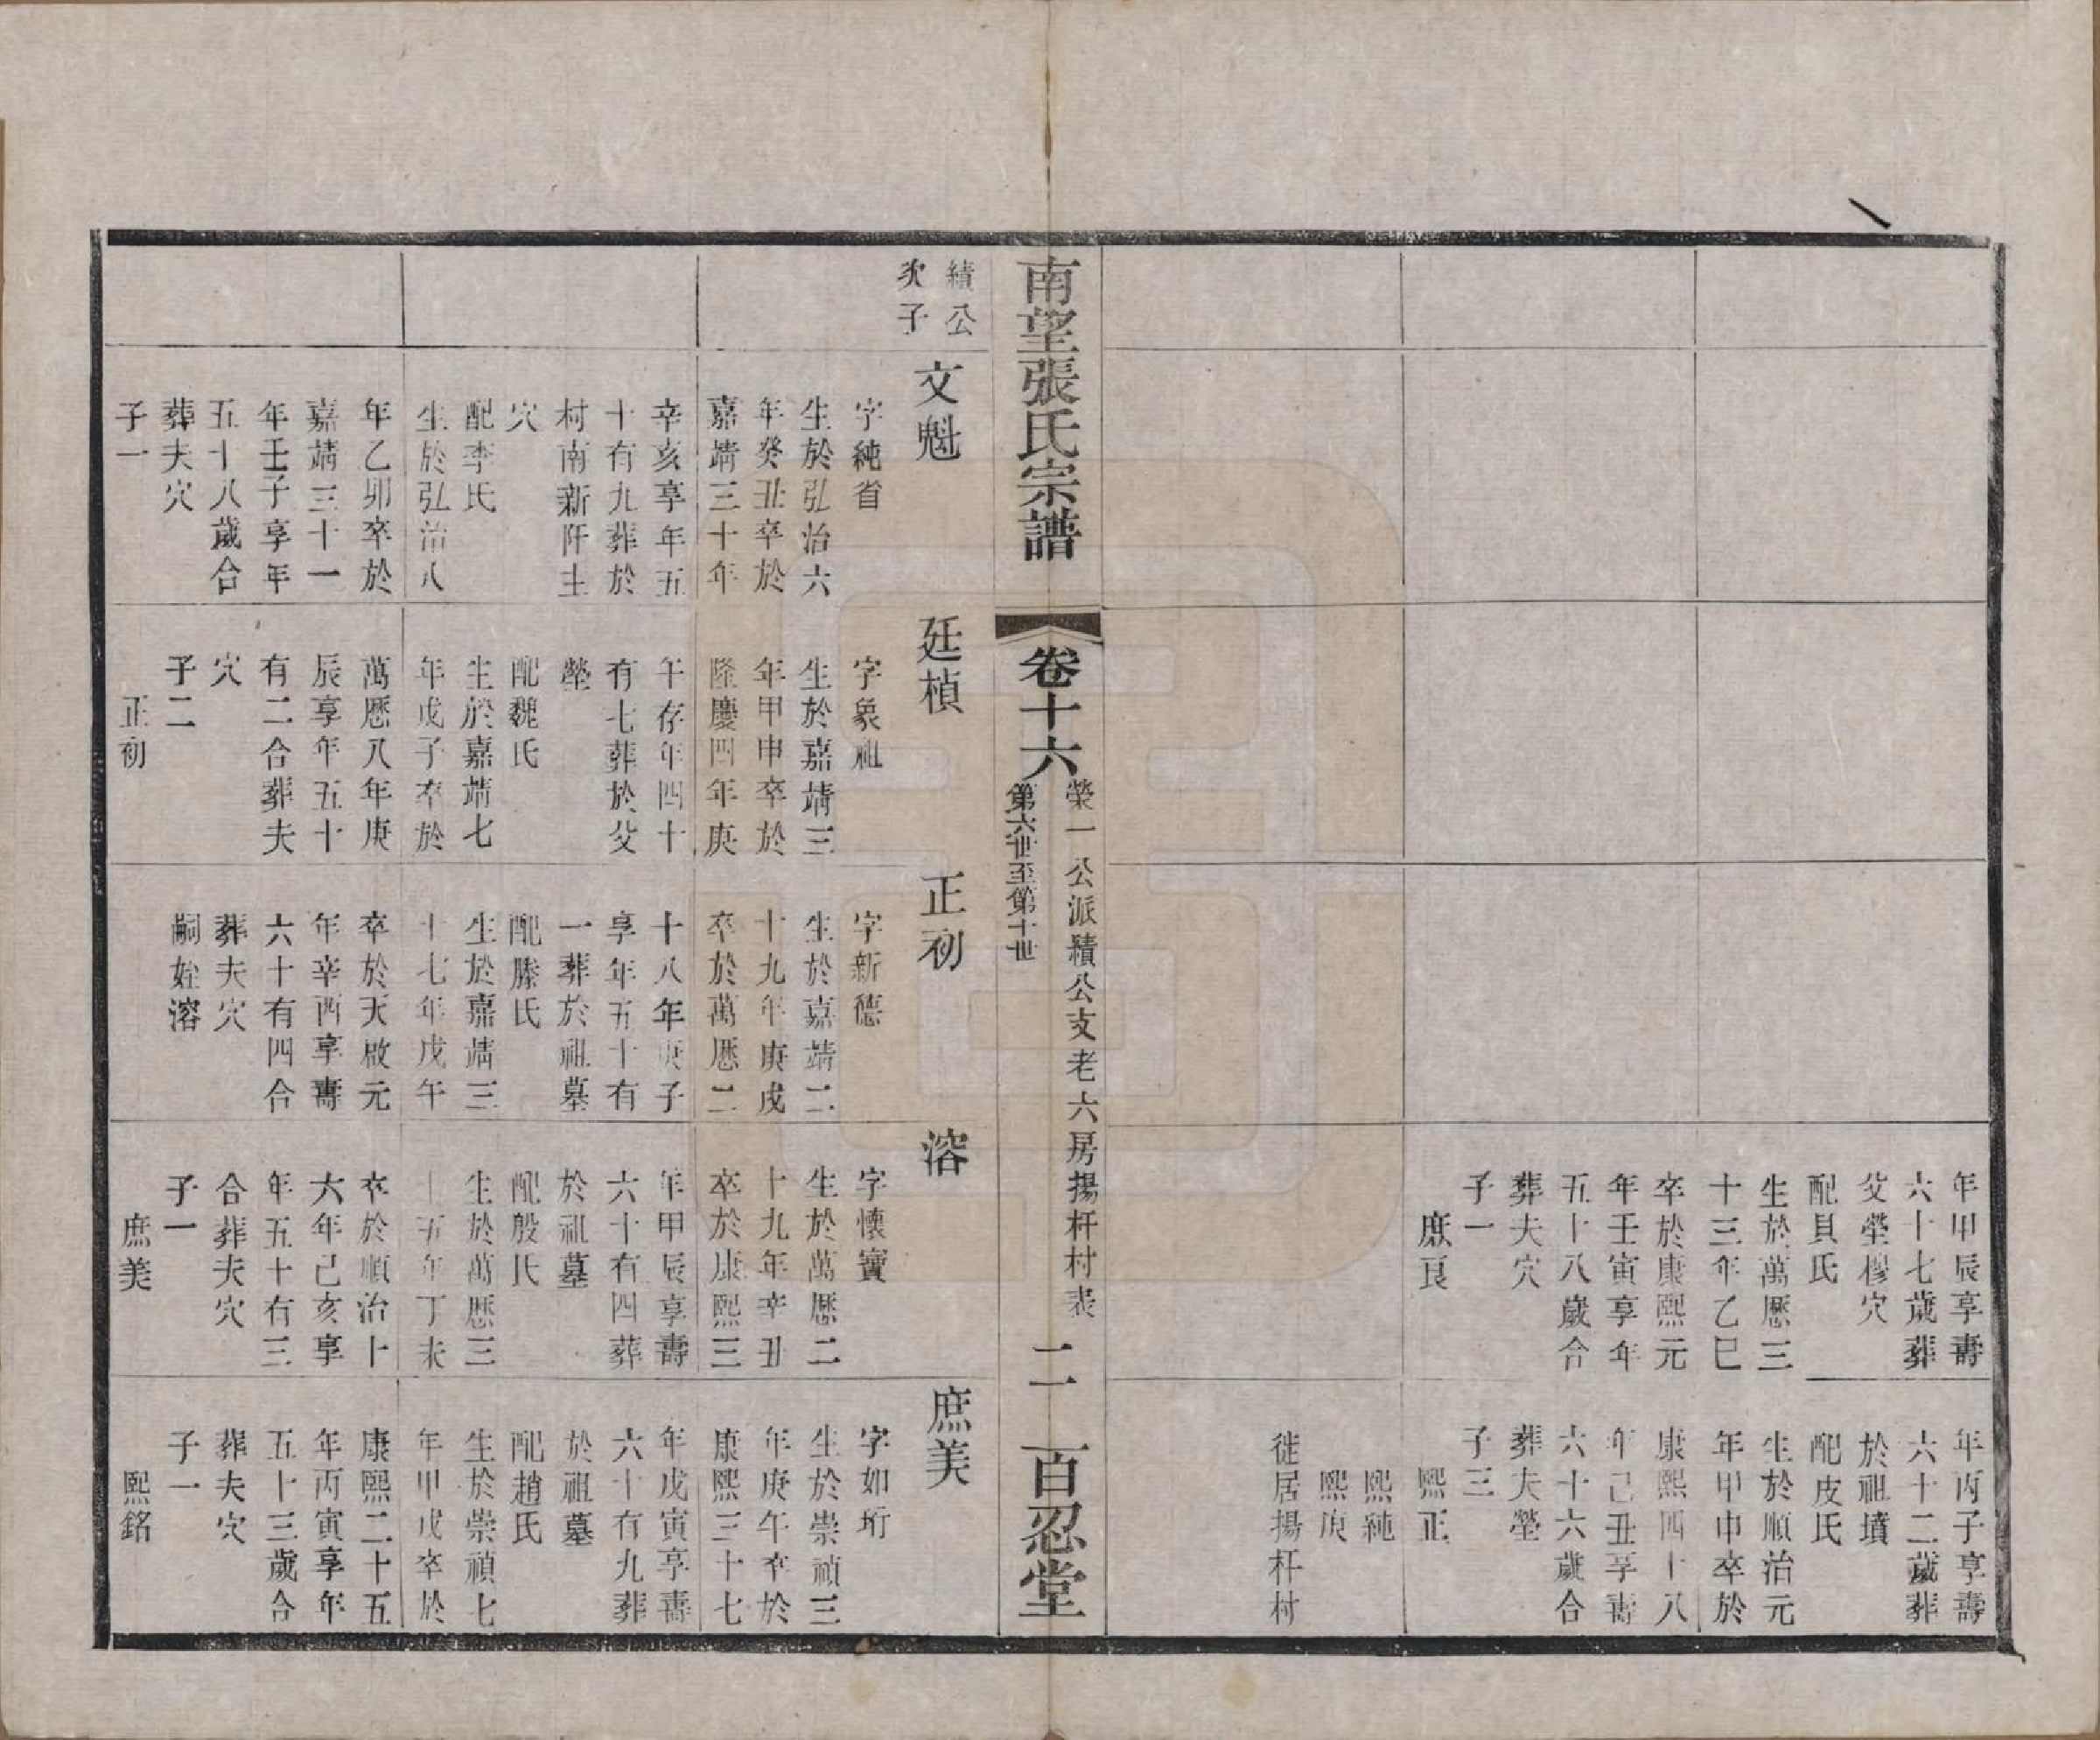 年甲辰享壽
六十七歲葬
父塋穆穴
配貝氏
生於萬曆三
十三年乙巳
卒於康熙元
年壬寅享年
五十八歲合
葬夫穴
子一
庶良
年丙子享壽
六十二歲葬
於祖墳
配皮氏
生於順治元
年甲申卒於
康熙四十八
年己丑享壽
六十六歲合
葬夫塋
子三
熙正
熙純
熙庚
徙居揚杆村
南望張氏宗譜
卷十六
榮一公派績公支老六房揚杆村表
第六世至第十世
二
百忍堂
績公
次子
文魁
字純省
生於弘治六
年癸丑卒於
嘉靖三十年
辛亥享年五
十有九葬於
村南新阡主
穴
配李氏
生於弘治八
年乙卯卒於
嘉靖三十一
年壬子享年
五十八歲合
葬夫穴
子一
廷楨
字象祖
生於嘉靖三
年甲申卒於
隆慶四年庚
午存年四十
有七葬於父
塋
配魏氏
生於嘉靖七
年戊子卒於
萬曆八年庚
辰享年五十
有二合葬夫
穴
子二
正初
正初
字新德
生於嘉靖二
十九年庚戌
卒於萬曆二
十八年庚子
享年五十有
一葬於祖墓
配滕氏
生於嘉靖三
十七年戊午
卒於天啟元
年辛酉享壽
六十有四合
葬夫穴
嗣姪溶
溶
字懷寶
生於萬曆二
十九年辛丑
卒於康熙三
年甲辰享壽
六十有四葬
於祖墓
配殷氏
生於萬曆三
十五年丁未
卒於順治十
六年己亥享
年五十有三
合葬夫穴
子一
庶美
庶美
字如珩
生於崇禎三
年庚午卒於
康熙三十七
年戊寅享壽
六十有九葬
於祖墓
配趙氏
生於崇禎七
年甲戌卒於
康熙二十五
年丙寅享年
五十三歲合
葬夫穴
子一
熙銘